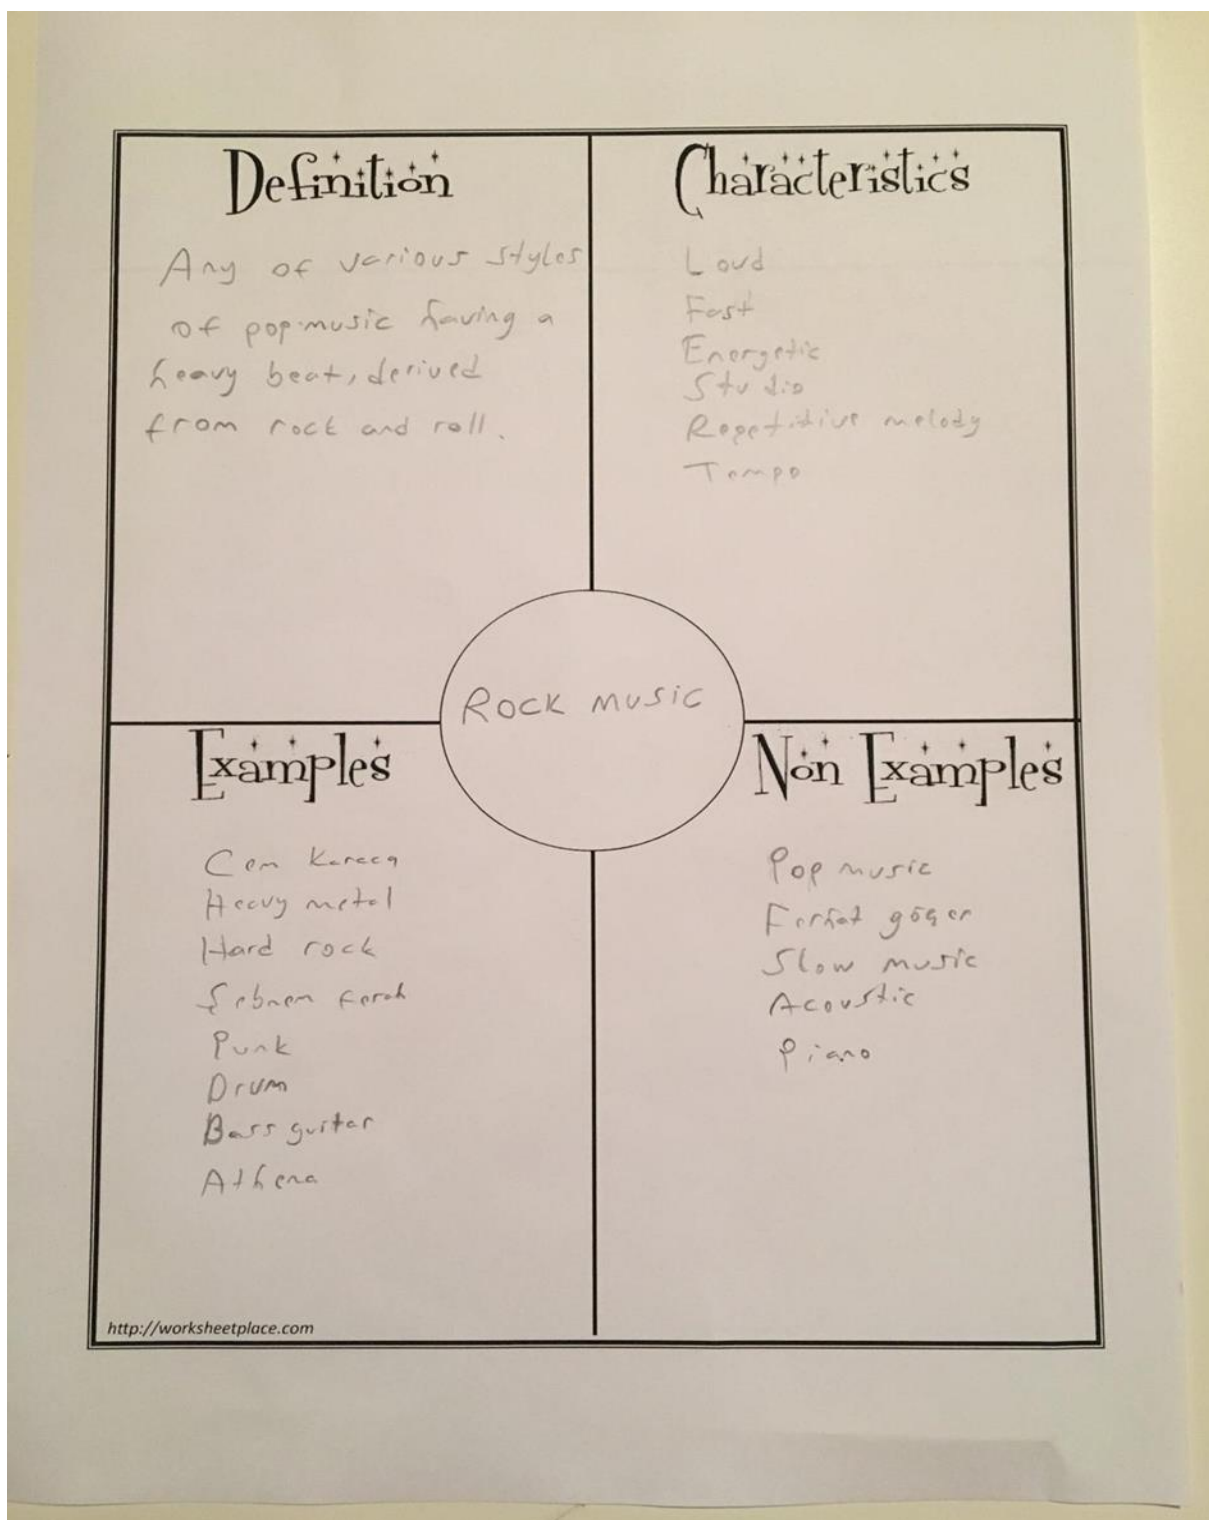 Definition
Any of various styles
of pop music having a
heavy beat, derived
from rock and roll.
Characteristics
Loud
Fast
Energetic
Studio
Repetitive melody
Tempo
Rock music
Examples
Cem Karaca
Heavy metal
Hard rock
Şebnem ferah
Punk
Drum
Bass guitar
Athena
Non Examples
Pop music
Ferhat göçer
Slow music
Acoustic
Piano
http://worksheetplace.com